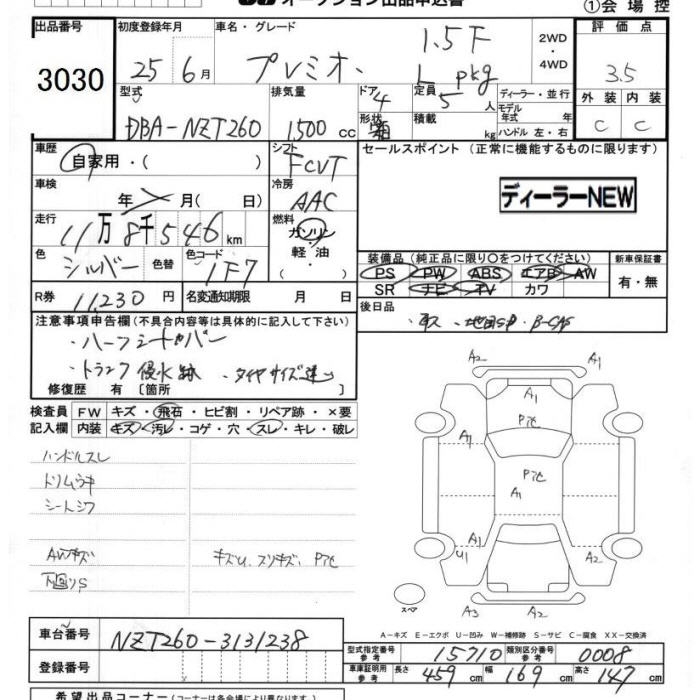 オークション出品申込書
①会場控
出品番号
3030
初度登録年月
25 6月
車名・グレード
プレミオ、
1.5F
L pkg
2WD
・
4WD
評価点
3.5
外装 内装
C C
型式
DBA-NZT260
排気量
1,500 cc
ドア 4
形状 箱
定員 5 人
積載 kg
ディーラー・並行
モデル年式 年
ハンドル 左・右
車歴
自家用・( )
シフト
FCVT
車検
年 月( 日)
冷房
AAC
走行
11万8千546km
燃料
ガソリン・
軽油・
色
シルバー
色替
色コード
1F7
R券
11,230円
名変通知期限 月 日
セールスポイント (正常に機能するものに限ります)
ディーラーNEW
装備品 (純正品に限り○をつけてください)
PS PW ABS エアB AW
SR ナビ TV カワ
新車保証書
有・無
後日品
注意事項申告欄 (不具合内容等は具体的に記入して下さい)
・ハーフシートカバー
・トランク浸水跡 ・タイヤサイズ違い
修復歴 有 [箇所 ]
検査員 FW キズ・飛石・ヒビ割・リペア跡・×要
記入欄 内装 キズ・汚レ・コゲ・穴・スレ・キレ・破レ
ハンドルスレ
トリムウキ
シートシワ
AWキズ
キズU、スリキズ、P七
下回りS
A2 A1
A1
P七
A1 A1
P七
A1
A1
U1 A2
スペア
A3 A2
A−キズ E−エクボ U−凹み W−補修跡 S−サビ C−腐食 XX−交換済
車台番号
NZT260-3131238
登録番号
型式指定番号 参考 15710 類別区分番号 参考 0008
車庫証明用 参考 長さ 459cm 幅 169cm 高さ 147cm
希望出品コーナー (各会場により異なります)